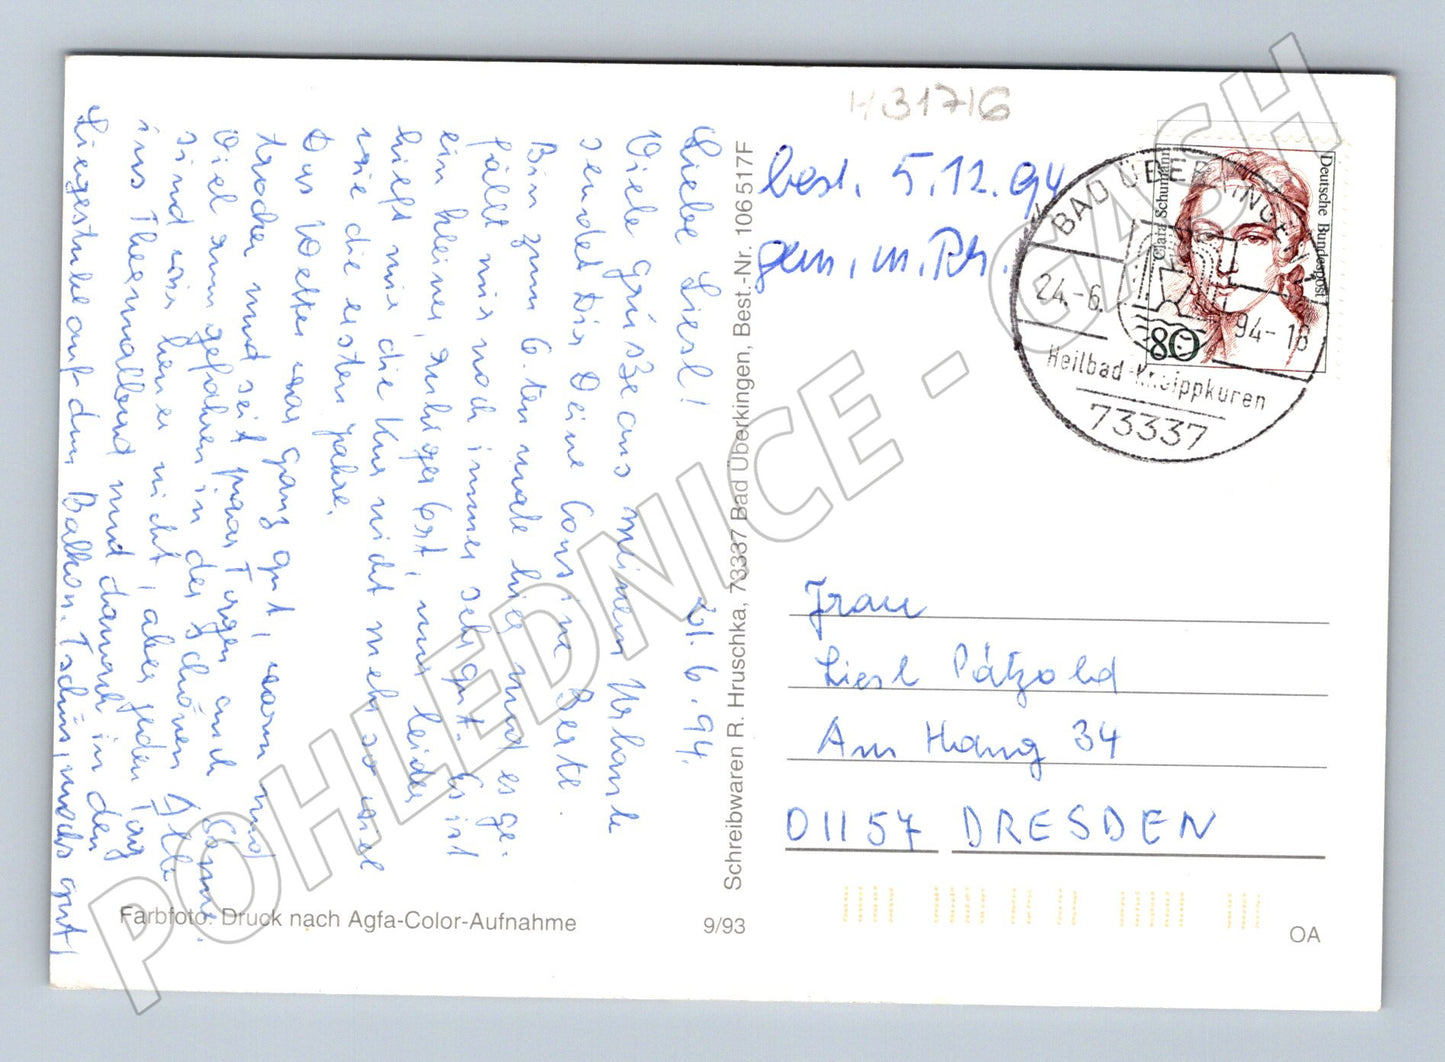 H31716
best. 5.12.94
gem. m. Ph.
Deutsche Bundespost
Clara Schumann
80
BAD ÜBERKINGEN
24.-6.
94-18
Heilbad-Kneippkuren
73337
Liebe Liesl! 21.6.94.
Viele Grüsse aus meinem Urlaub
sendet Dir Deine Cousine Berte.
Bin zum 6.ten male hier und es ge-
fällt mir noch immer sehr gut. Es ist
ein kleiner, ruhiger Ort, nur leider
hielt mir die Kur nicht mehr so viel
wie die ersten Jahre.
Das Wetter war ganz gut, warm und
trocken und seit paar Tagen auch
viel rumgefahren in der schönen
sind wir hier nicht, aber jeden Tag
ins Thermalbad und danach in den
Liegestuhl auf dem Balkon. Tschüs, machs gut,
Schreibwaren R. Hruschka, 73337 Bad Überkingen, Best.-Nr. 106 517F
Frau
Liesl Pätzold
Am Hang 34
01157 DRESDEN
Farbfoto: Druck nach Agfa-Color-Aufnahme
9/93
OA
POHLEDNICE - GASH